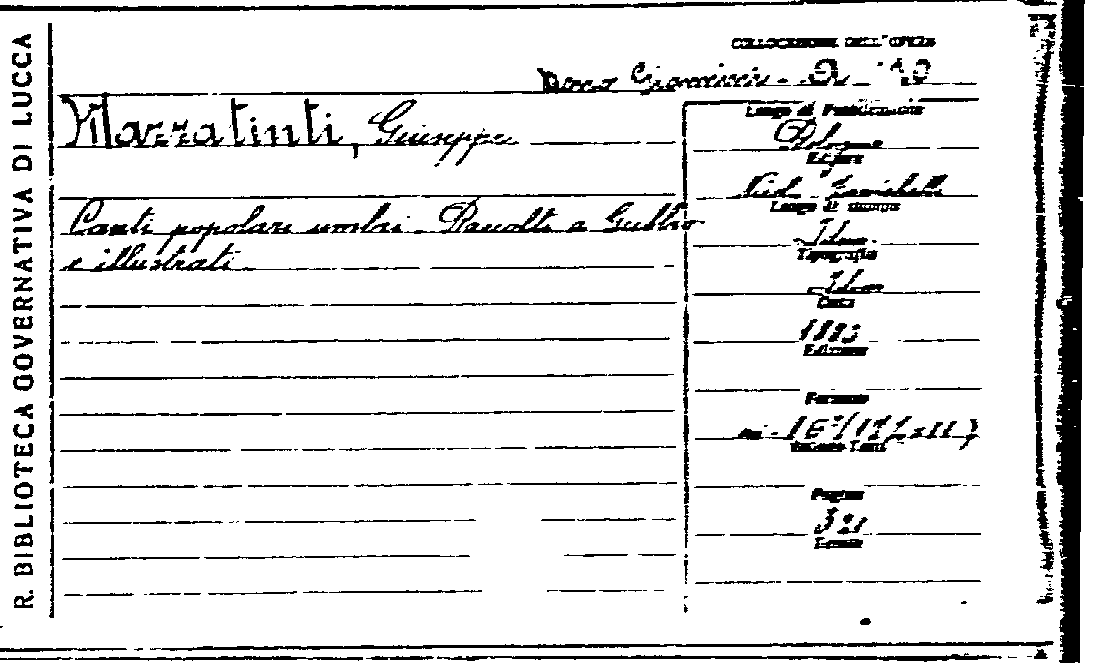 R. BIBLIOTECA GOVERNATIVA DI LUCCA
COLLOCAZIONE DELL'OPERA
Dono
Mazzatinti, Giuseppe
Canti popolari umbri - Raccolti a Gubbio
e illustrati
Luogo di Pubblicazione
Bologna
Editore
Nicol. Zanichelli
Luogo di stampa
Idem
Tipografia
Idem
Data
1883
Edizione
Formato
in-16°
Pagine
321